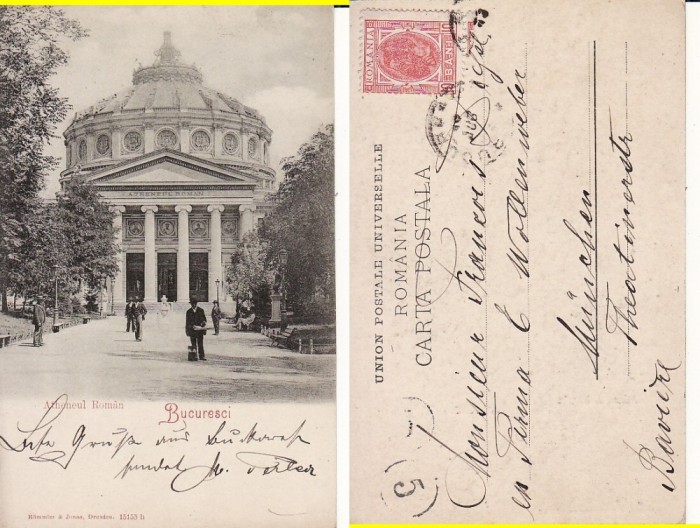 ATENEUL ROMAN
Atheneul Român
Bucuresci
Beste Grüße aus Bukarest
sendet M.
15153 b
ROMANIA
10
BANI
UNION POSTALE UNIVERSELLE
ROMÂNIA
CARTA POSTALA
Monsieur François
en Firma E Wollenweber
München
Theatinerstr
Bavière
5